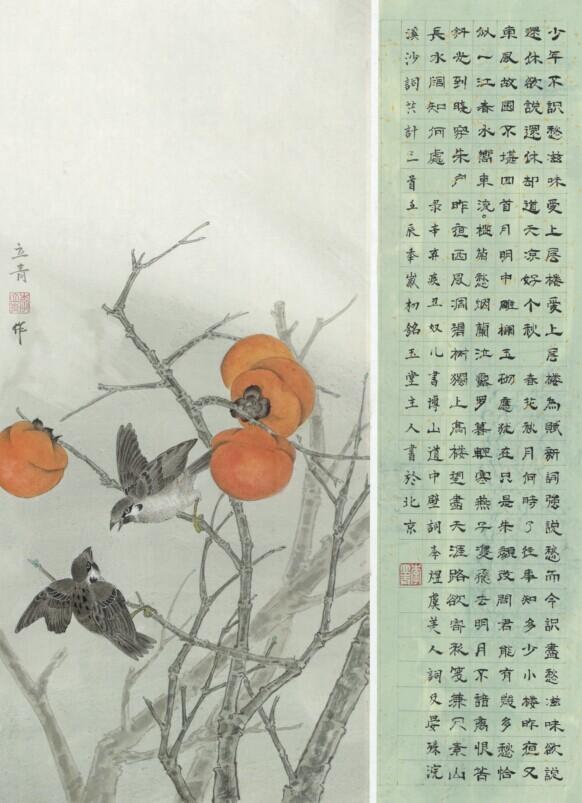 少年不識愁滋味愛上層樓愛上層樓為賦新詞強說愁而今識盡愁滋味欲說
還休欲說還休却道天凉好个秋 春花秋月何時了往事知多少小樓昨夜又
東風故國不堪回首月明中雕欄玉砌應猶在只是朱顏改問君能有幾多愁恰
似一江春水嚮東流。檻菊愁烟蘭泣露罗幕輕寒燕子雙飛去明月不諳离恨苦
斜光到曉穿朱户昨夜西風凋碧樹獨上高樓望盡天涯路欲寄彩箋兼尺素山
長水闊知何處 录辛弃疾丑奴儿書博山道中壁詞李煜虞美人詞及晏殊浣
溪沙詞共計三首壬辰季歲初銘玉堂主人書於北京
立青
作